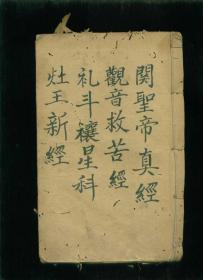 関聖帝真經
觀音救苦經
礼斗禳星科
灶王新經